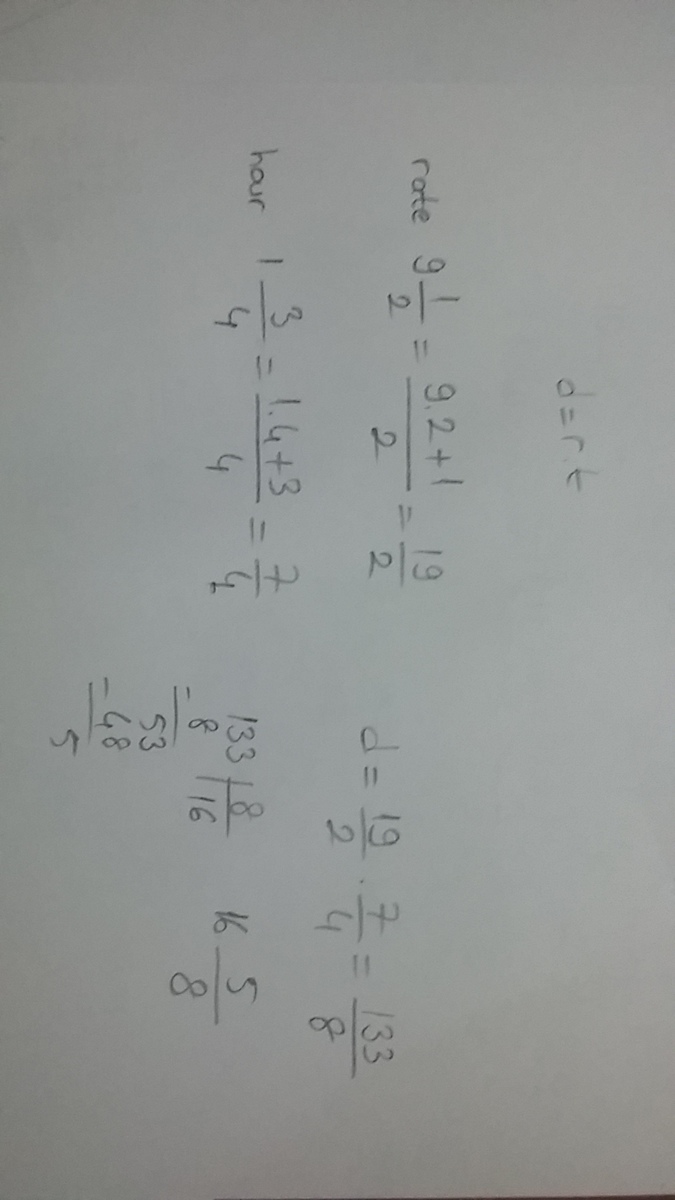 d=r.t
rate 9 1/2 = 9.2+1/2 = 19/2
hour 1 3/4 = 1.4+3/4 = 7/4
d = 19/2 . 7/4 = 133/8
133 | 8
- 8 | 16
53
- 48
5
16 5/8